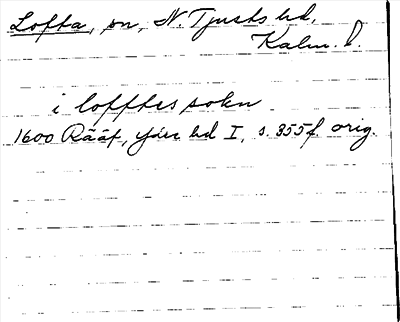 Lofta, sn, N. Tjusts hd,
Kalm. l.
i lofftes sokn
1600 Rääf, Ydre hd I, s. 355f. orig.